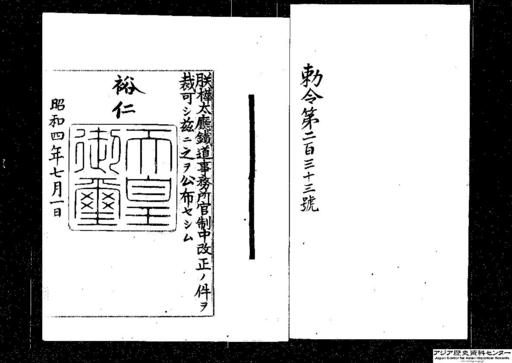 勅令第二百三十三號
朕樺太廳鐵道事務所官制中改正ノ件ヲ
裁可シ茲ニ之ヲ公布セシム
裕仁
天皇
御璽
昭和四年七月一日
アジア歴史資料センター
Japan Center for Asian Historical Records